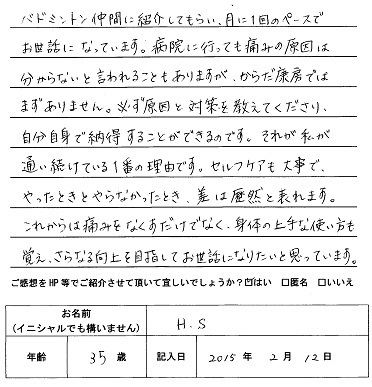 バドミントン仲間に紹介してもらい、月に1回のペースで
お世話になっています。病院に行っても痛みの原因は
分からないと言われることもありますが、からだ康房では
まずありません。必ず原因と対策を教えてくださり、
自分自身で納得することができるのです。それが私が
通い続けている1番の理由です。セルフケアも大事で、
やったときとやらなかったとき、差は歴然と表れます。
これからは痛みをなくすだけでなく、身体の上手な使い方も
覚え、さらなる向上を目指してお世話になりたいと思っています。
ご感想をHP等でご紹介させて頂いて宜しいでしょうか?☑はい □匿名 □いいえ
お名前
(イニシャルでも構いません) H.S
年齢 35歳 記入日 2015年 2月 12日